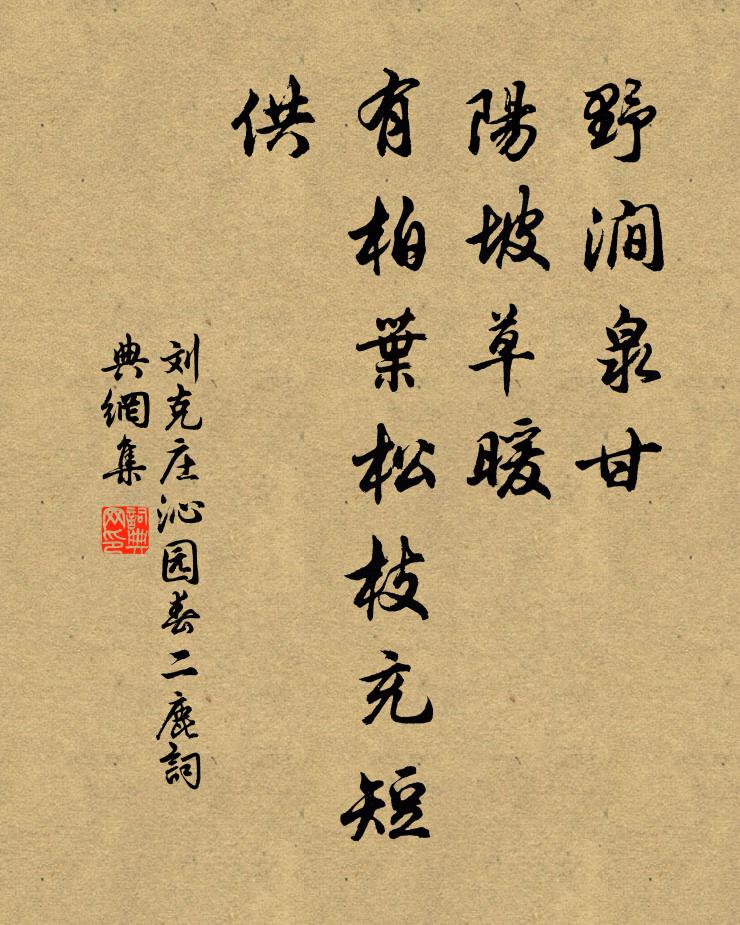 野澗泉甘
陽坡草暖
有柏葉松枝充短
供
刘克庄沁园春二鹿詞
典網集
詞典網印